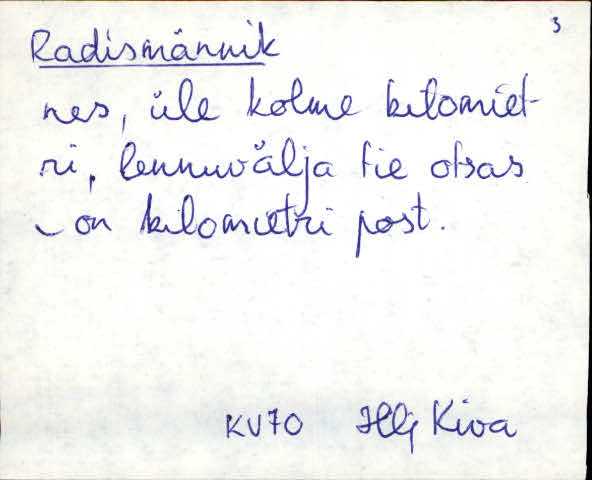 3
Radismännik
nes, üle kolme kilomiet-
ri, lennuvälja tie otsas
on kilomietri post.
KV70 Hlj Kiva